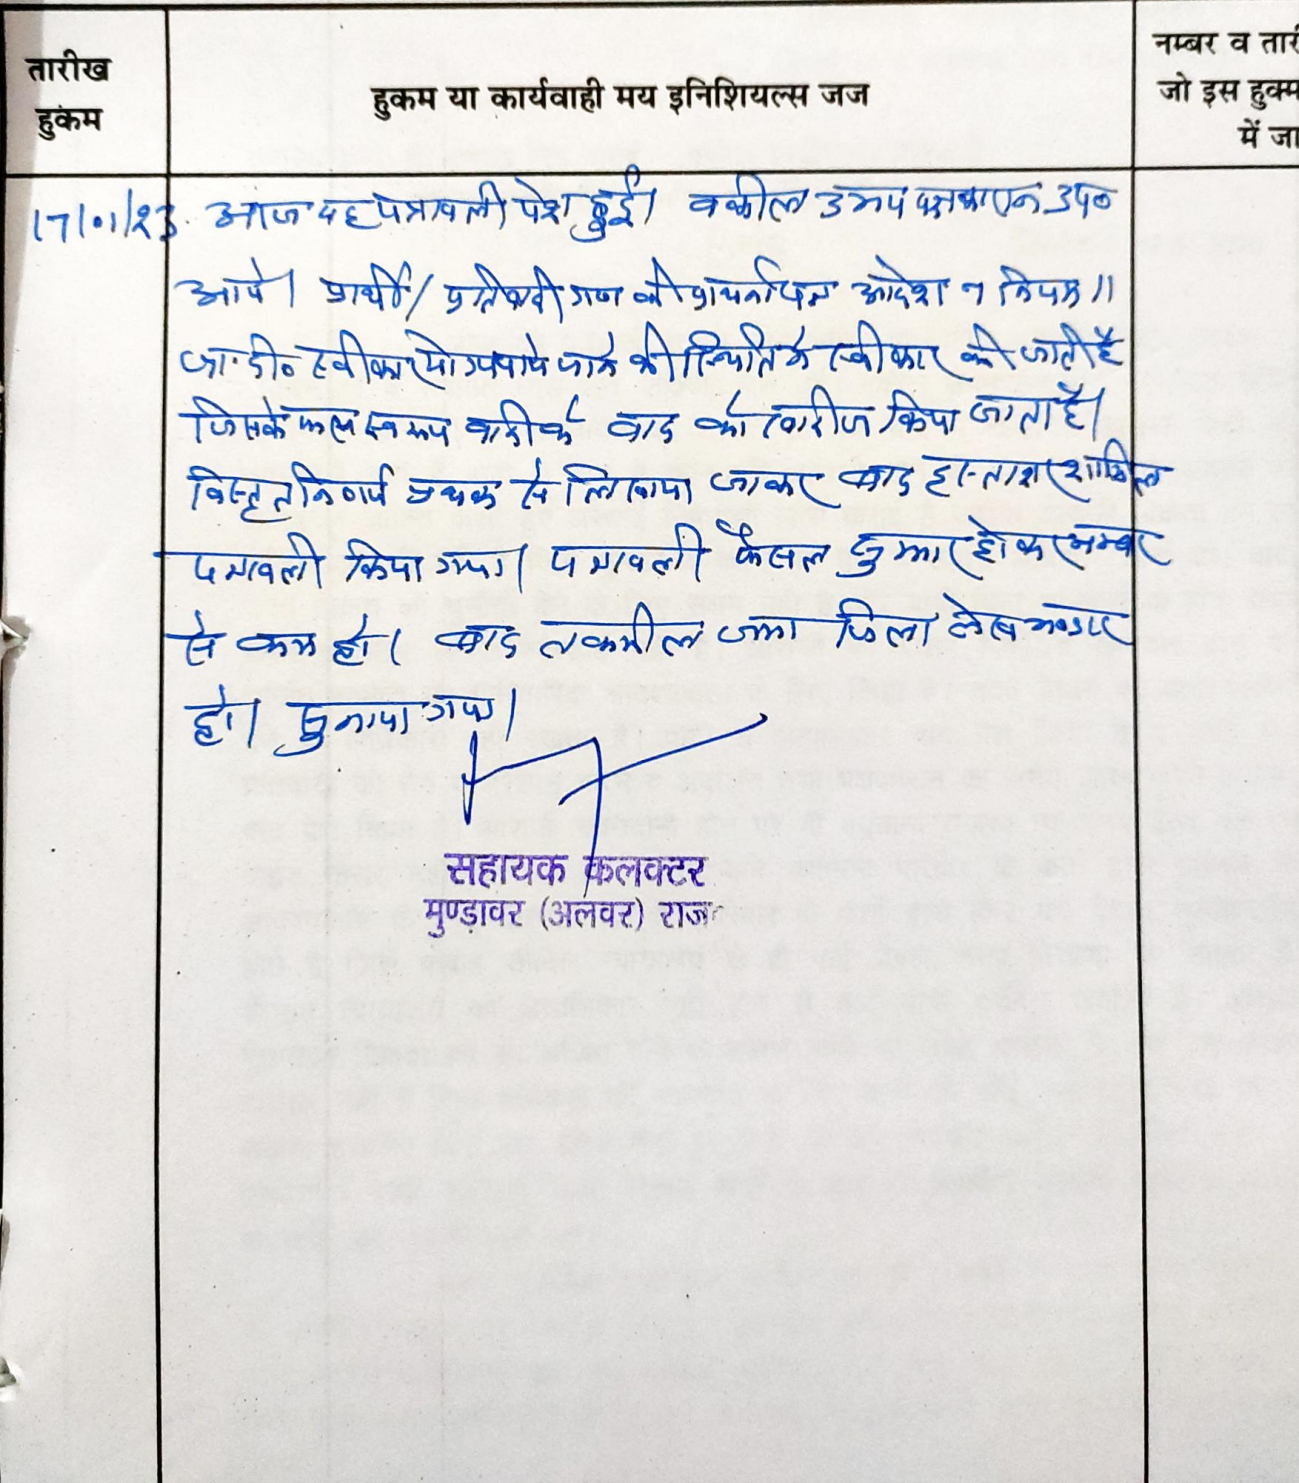 तारीख
हुकम
हुकम या कार्यवाही मय इनिशियल्स जज
नम्बर व तारी
जो इस हुक्म
में जा
17/01/23 आज यह पत्रावली पेश हुई। वकील उभय पक्षकारान उप०
आये। प्रार्थी/प्रतिवादीगण की प्रार्थनापत्र आदेश 7 नियम 11
जा.दी० स्वीकार योग्य पाये जाने की स्थिति में स्वीकार की जाती है
जिसके फलस्वरूप वादी के वाद को खारीज किया जाता है।
विस्तृत निर्णय पृथक से लिखाया जाकर बाद हस्ताक्षर शामिल
पत्रावली किया गया। पत्रावली फैसल शुमार होकर नम्बर
से कम हो। बाद तकमील जमा जिला लेख भण्डार
हो। सुनाया गया।
सहायक कलक्टर
मुण्डावर (अलवर) राज०